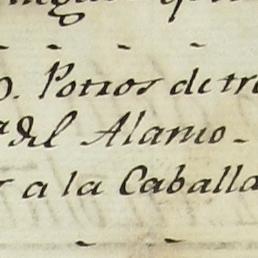 Potros de tr
del Alamo-
a la Caballa